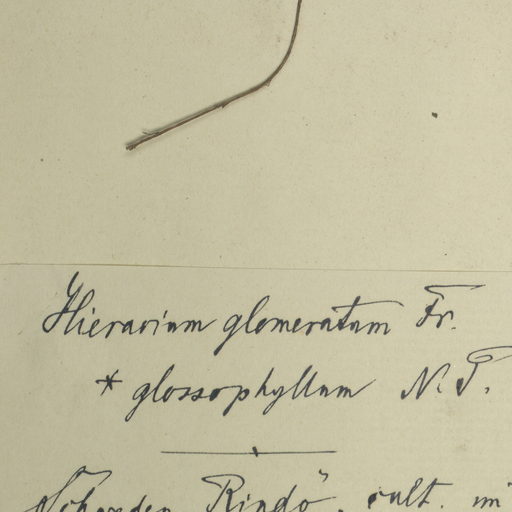 Hieracium glomeratum Fr.
* glossophyllum N. P.
Rindö", cult. im